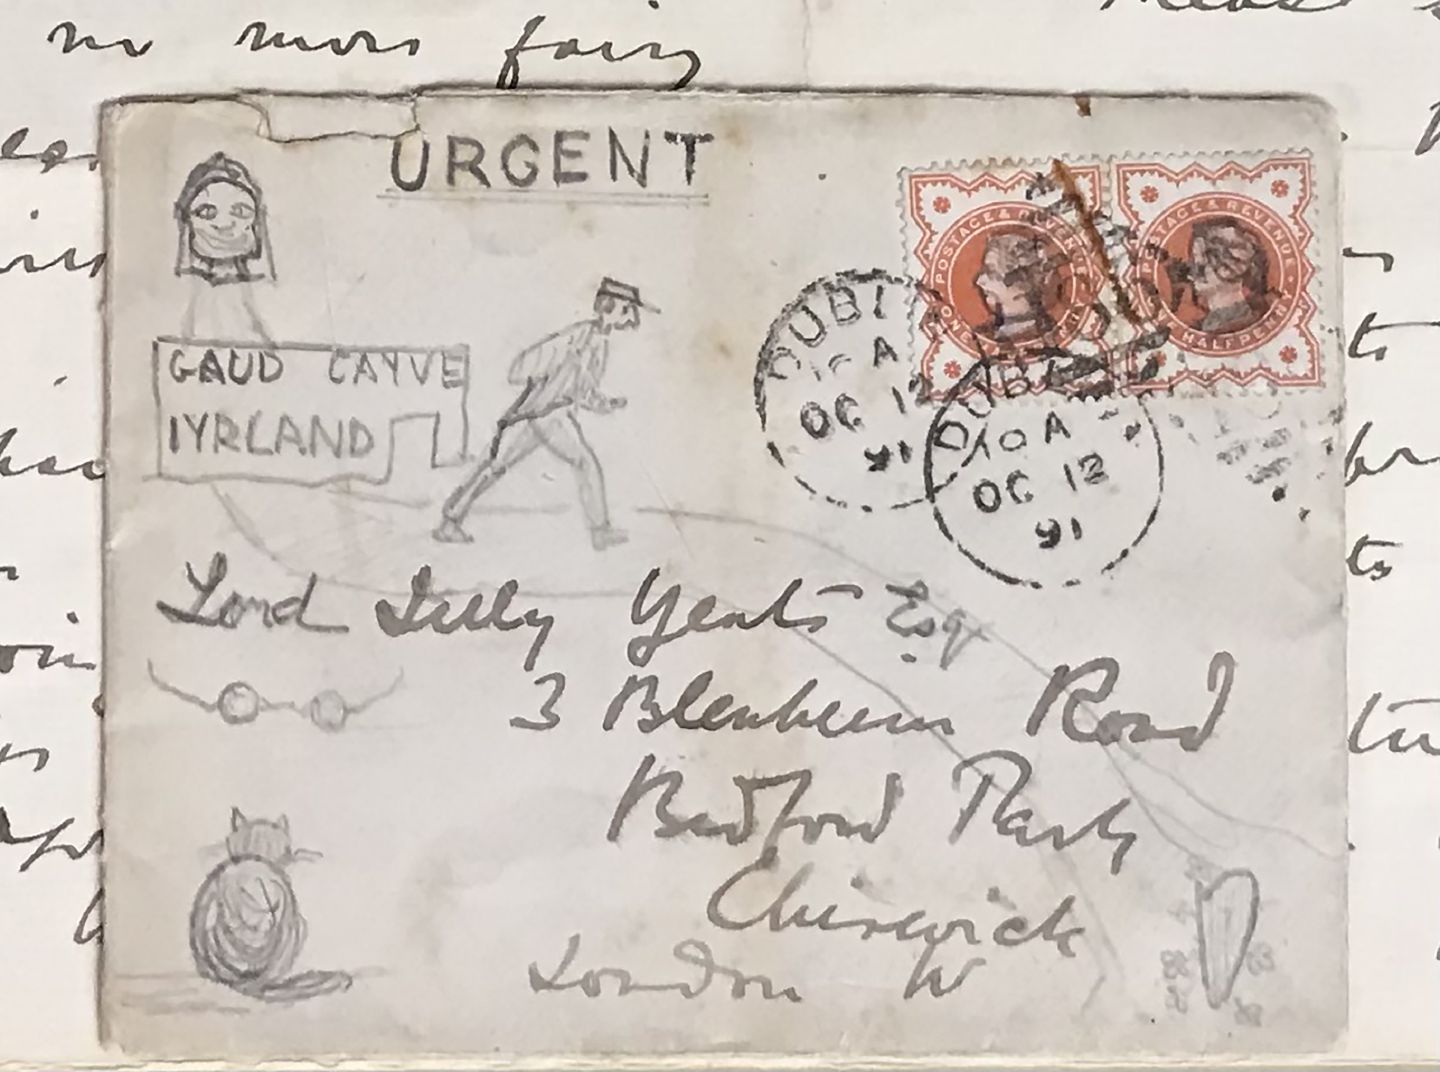 no more fairy
URGENT
GAUD CAYVE
IYRLAND
POSTAGE & REVENUE
HALFPENNY
POSTAGE & REVENUE
HALFPENNY
DUBLI
10 A
OC 12
91
DUBL
10 A
OC 12
91
Lord Lilly Yeats Esqr
3 Blenheim Road
Bedford Park
Chiswick
London W